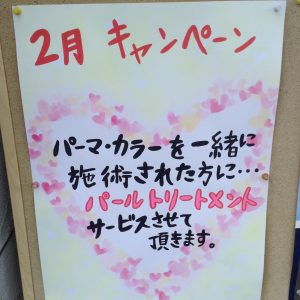 2月 キャンペーン
パーマ・カラーを一緒に
施術された方に…
パールトリートメント
サービスさせて
頂きます。